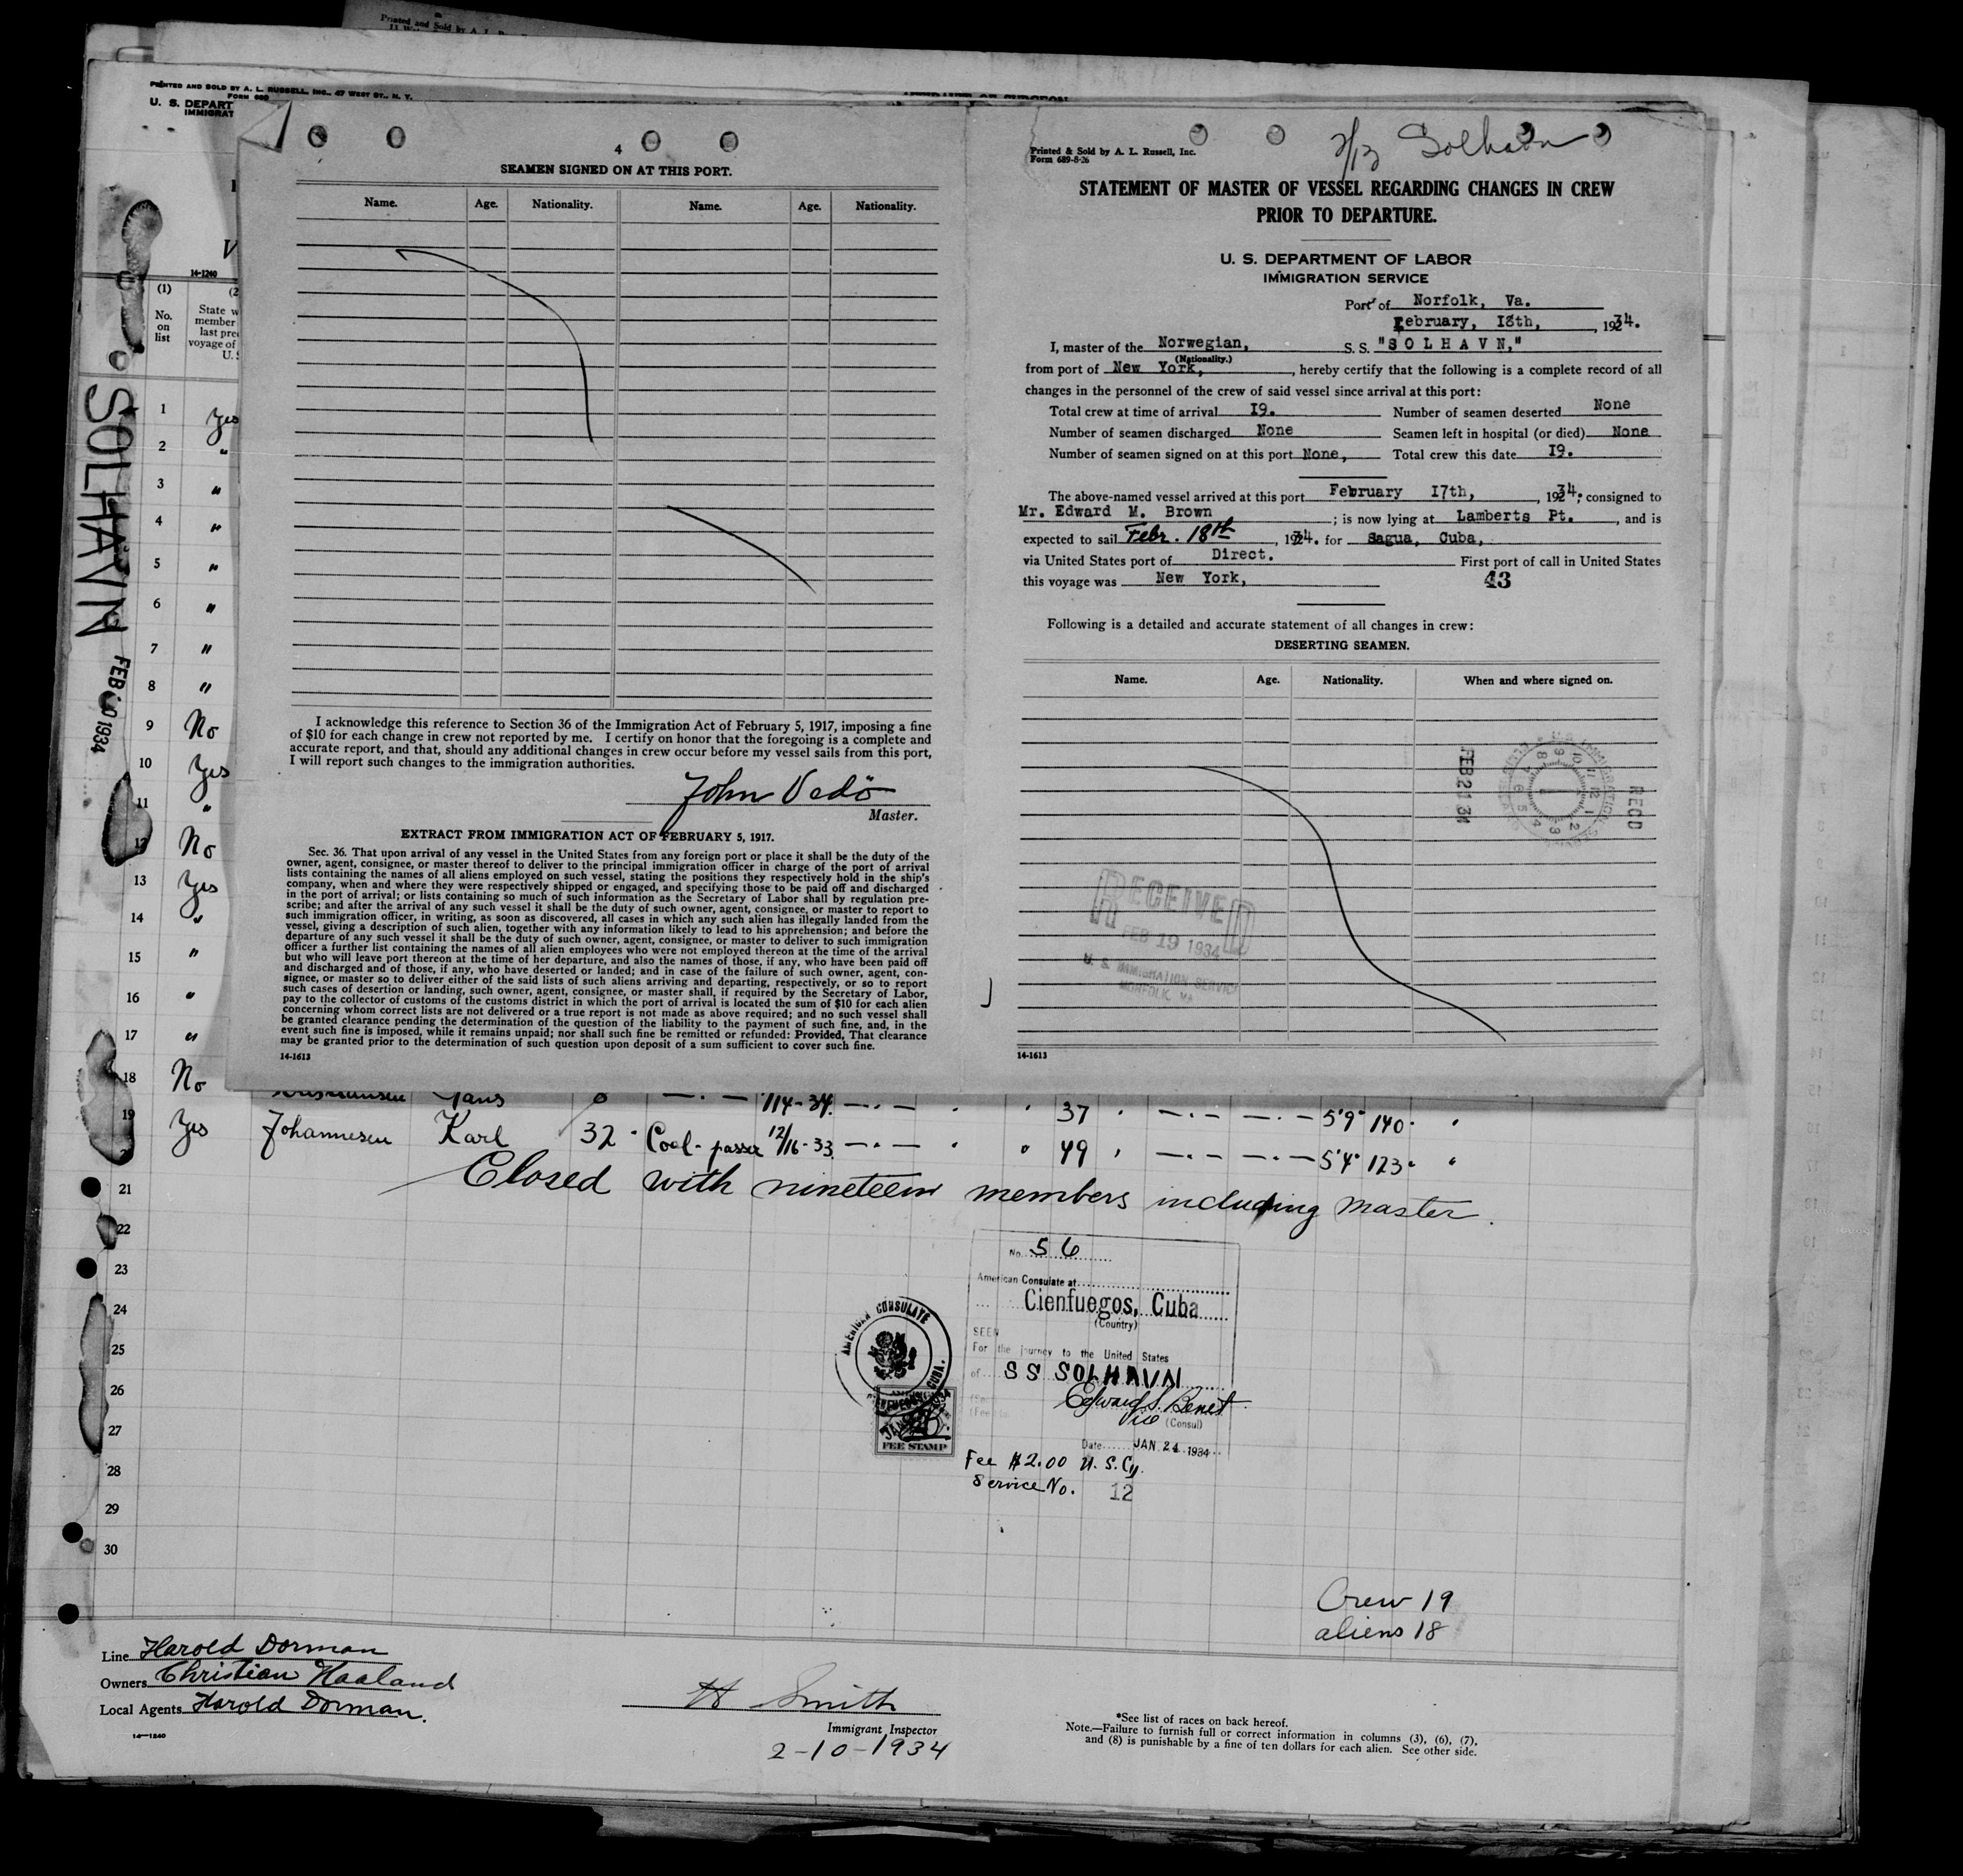 Printed and Sold by A. L.
PRINTED AND SOLD BY A. L. RUSSELL, INC., 47 WEST ST., N. Y.
FORM 689
U. S. DEPART
IMMIGRAT
14-1240
(1)
No.
on
list
State w
member
last pre
voyage of
U. S
SOLHAVN
FEB 10 1934
1 Yes
2 "
3 "
4 "
5 "
6 "
7 "
8 "
9 No
10 Yes
11 "
12 No
13 Yes
14 "
15 "
16 "
17 "
18 No
4
SEAMEN SIGNED ON AT THIS PORT.
Name. Age. Nationality. Name. Age. Nationality.
I acknowledge this reference to Section 36 of the Immigration Act of February 5, 1917, imposing a fine
of $10 for each change in crew not reported by me. I certify on honor that the foregoing is a complete and
accurate report, and that, should any additional changes in crew occur before my vessel sails from this port,
I will report such changes to the immigration authorities.
John Vedö
Master.
EXTRACT FROM IMMIGRATION ACT OF FEBRUARY 5, 1917.
Sec. 36. That upon arrival of any vessel in the United States from any foreign port or place it shall be the duty of the
owner, agent, consignee, or master thereof to deliver to the principal immigration officer in charge of the port of arrival
lists containing the names of all aliens employed on such vessel, stating the positions they respectively hold in the ship's
company, when and where they were respectively shipped or engaged, and specifying those to be paid off and discharged
in the port of arrival; or lists containing so much of such information as the Secretary of Labor shall by regulation pre-
scribe; and after the arrival of any such vessel it shall be the duty of such owner, agent, consignee, or master to report to
such immigration officer, in writing, as soon as discovered, all cases in which any such alien has illegally landed from the
vessel, giving a description of such alien, together with any information likely to lead to his apprehension; and before the
departure of any such vessel it shall be the duty of such owner, agent, consignee, or master to deliver to such immigration
officer a further list containing the names of all alien employees who were not employed thereon at the time of the arrival
but who will leave port thereon at the time of her departure, and also the names of those, if any, who have been paid off
and discharged and of those, if any, who have deserted or landed; and in case of the failure of such owner, agent, con-
signee, or master so to deliver either of the said lists of such aliens arriving and departing, respectively, or so to report
such cases of desertion or landing, such owner, agent, consignee, or master shall, if required by the Secretary of Labor,
pay to the collector of customs of the customs district in which the port of arrival is located the sum of $10 for each alien
concerning whom correct lists are not delivered or a true report is not made as above required; and no such vessel shall
be granted clearance pending the determination of the question of the liability to the payment of such fine, and, in the
event such fine is imposed, while it remains unpaid; nor shall such fine be remitted or refunded: Provided, That clearance
may be granted prior to the determination of such question upon deposit of a sum sufficient to cover such fine.
14-1613
2/13 Solhavn
Printed & Sold by A. L. Russell, Inc.
Form 689-8-26
STATEMENT OF MASTER OF VESSEL REGARDING CHANGES IN CREW
PRIOR TO DEPARTURE.
U. S. DEPARTMENT OF LABOR
IMMIGRATION SERVICE
Port of Norfolk, Va.
February, 18th, , 1934.
I, master of the Norwegian, S. S. "S O L H A V N,"
(Nationality.)
from port of New York, , hereby certify that the following is a complete record of all
changes in the personnel of the crew of said vessel since arrival at this port:
Total crew at time of arrival I9. Number of seamen deserted None
Number of seamen discharged None Seamen left in hospital (or died) None
Number of seamen signed on at this port None, Total crew this date I9.
The above-named vessel arrived at this port February I7th, , 1934; consigned to
Mr. Edward M. Brown ; is now lying at Lamberts Pt. , and is
expected to sail Febr. 18th , 1934. for Sagua, Cuba,
via United States port of Direct. First port of call in United States
this voyage was New York, 43
Following is a detailed and accurate statement of all changes in crew:
DESERTING SEAMEN.
Name. Age. Nationality. When and where signed on.
REC'D
FEB 21 34
RECEIVED
FEB 19 1934
U. S. IMMIGRATION SERVICE
NORFOLK, VA.
14-1613
Hans 1/14-34. 37 5'9" 140 "
19 Yes Johannesen Karl 32 Coal-passer 12/16-33. 49 5'4" 123 "
Closed with nineteen members including master.
21
22
23
24
25
26
27
28
29
30
No. 56
American Consulate at
Cienfuegos, Cuba
(Country)
SEEN
For the journey to the United States
of SS SOLHAVN
Edward S. Benet
Vice (Consul)
Date JAN 24 1934
Fee $2.00 U. S. Cy.
Service No. 12
AMERICAN CONSULATE
CIENFUEGOS, CUBA.
FEE STAMP
Crew 19
aliens 18
Line Harold Dorman
Owners Christian Haaland
Local Agents Harold Dorman.
14-1240
H Smith
Immigrant Inspector
2-10-1934
*See list of races on back hereof.
Note.—Failure to furnish full or correct information in columns (3), (6), (7),
and (8) is punishable by a fine of ten dollars for each alien. See other side.